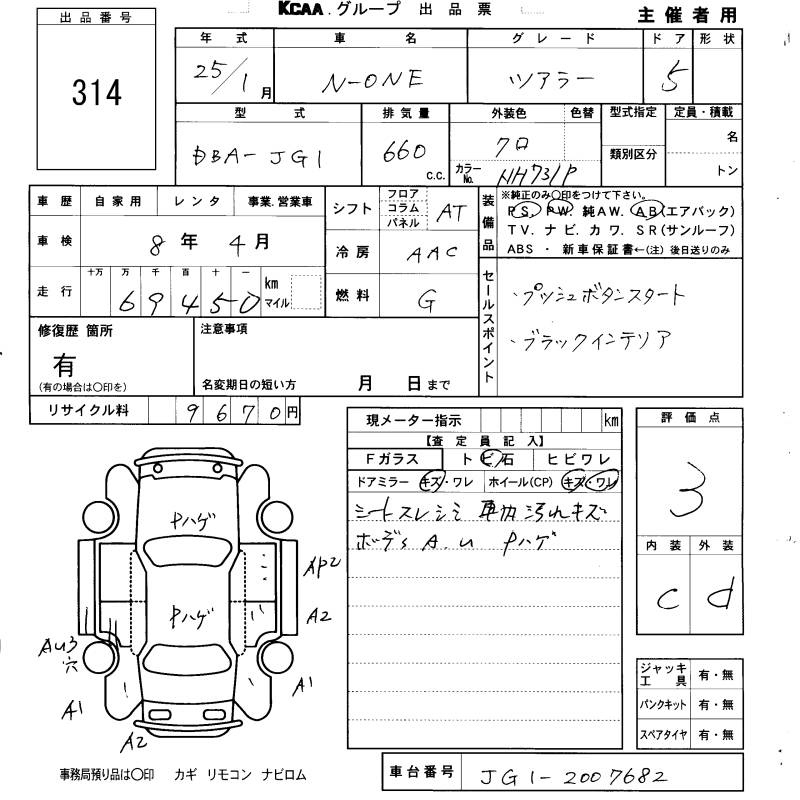 KCAA.グループ 出品票
主催者用
出品番号
314
年式 車名 グレード ドア 形状
25/1月 N-ONE ツアラー 5
型式 排気量 外装色 色替 型式指定 定員・積載
DBA-JG1 660 c.c. クロ カラーNo. NH731P 類別区分 名
トン
車歴 自家用 レンタ 事業.営業車
車検 8年4月
走行 十万 万 千 百 十 一
69450 km マイル
シフト フロア コラム パネル AT
冷房 AAC
燃料 G
装備品
※純正のみ○印をつけて下さい。
PS. PW. 純AW. AB(エアバック)
TV. ナビ. カワ. SR(サンルーフ)
ABS ・ 新車保証書←(注) 後日送りのみ
セールスポイント
・プッシュボタンスタート
・ブラックインテリア
修復歴 箇所
有
(有の場合は○印を)
注意事項
名変期日の短い方 月 日まで
リサイクル料 9670円
現メーター指示 km
【査定員記入】
Fガラス トビ石 ヒビワレ
ドアミラー キズ・ワレ ホイール(CP) キズ・ワレ
シートスレシミ 車内汚れキズ
ボデs A.U Pハゲ
評価点
3
内装 外装
C d
Pハゲ
Pハゲ
AP2
A2
AU3
穴
A1
A1
A2
ジャッキ工具 有・無
パンクキット 有・無
スペアタイヤ 有・無
事務局預り品は○印 カギ リモコン ナビロム
車台番号 JG1-2007682